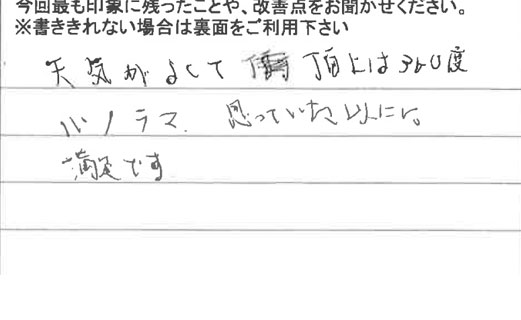 今回最も印象に残ったことや、改善点をお聞かせください。
※書ききれない場合は裏面をご利用下さい
天気がよくて 頂上は360度
パノラマ、思っていた以上に。
満足です